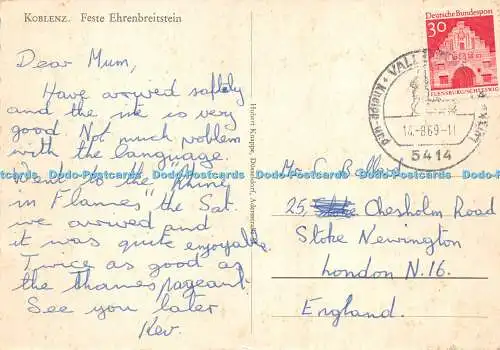 KOBLENZ. Feste Ehrenbreitstein
Dear Mum,
Have arrived safely
and the site is very
good. Not much problem
with the language.
Went to the "Rhine
in Flames" the Sat.
we arrived and
it was quite enjoyable.
Twice as good as
the Thames pageant.
See you later
Kev.
Hubert Knuppe, Dusseldorf,
Deutsche Bundespost
30
FLENSBURG/SCHLESWIG
14-8.69-11
5414
25, Chesholm Road
Stoke Newington
London N.16.
England.
Dodo-Postcards Dodo-Postcards Dodo-Postcards Dodo-Postcards Dodo-Postcards Dodo-Postcards